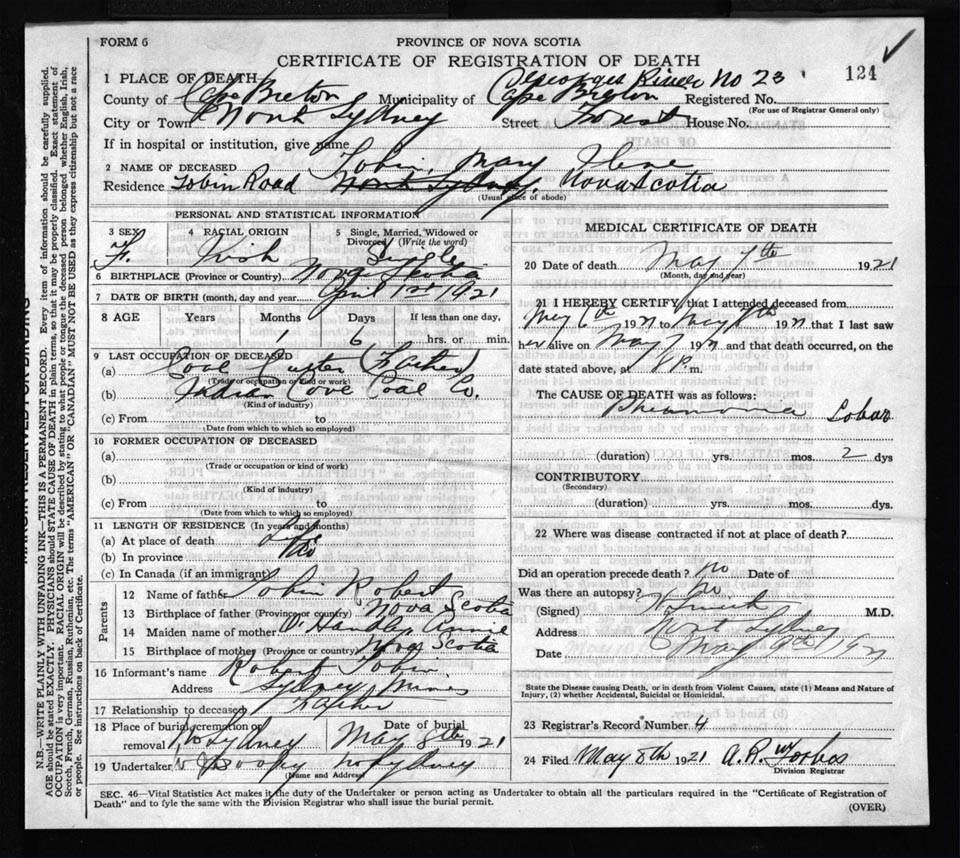 FORM 6
PROVINCE OF NOVA SCOTIA
CERTIFICATE OF REGISTRATION OF DEATH
124
1 PLACE OF DEATH Georges River No 23
County of Cape Breton Municipality of Cape Breton Registered No.
(For use of Registrar General only)
City or Town North Sydney Street Forest House No.
If in hospital or institution, give name
2 NAME OF DECEASED Tobin, Mary Ilene
Residence Tobin Road North Sydney. Nova Scotia
(Usual place of abode)
PERSONAL AND STATISTICAL INFORMATION
3 SEX F.
4 RACIAL ORIGIN Irish
5 Single, Married, Widowed or Divorced (Write the word) Single
6 BIRTHPLACE (Province or Country) Nova Scotia
7 DATE OF BIRTH (month, day and year) April 1st 1921
8 AGE Years Months Days If less than one day,
1 6 hrs. or min.
9 LAST OCCUPATION OF DECEASED
(a) Coal Cutter (Father)
(Trade or occupation or kind of work)
(b) Indian Cove Coal Co.
(Kind of industry)
(c) From to
(Date from which to which so employed)
10 FORMER OCCUPATION OF DECEASED
(a)
(Trade or occupation or kind of work)
(b)
(Kind of industry)
(c) From to
(Date from which to which so employed)
11 LENGTH OF RESIDENCE (In years and months)
(a) At place of death Life
(b) In province
(c) In Canada (if an immigrant)
Parents
12 Name of father Tobin Robert
13 Birthplace of father (Province or country) Nova Scotia
14 Maiden name of mother Annie
15 Birthplace of mother (Province or country) Nova Scotia
16 Informant's name Robert Tobin
Address Sydney Mines
17 Relationship to deceased Father
18 Place of burial, cremation or removal No Sydney Date of burial May 8th 1921
19 Undertaker No Sydney
(Name and Address)
MEDICAL CERTIFICATE OF DEATH
20 Date of death May 7th 1921
(Month, day and year)
21 I HEREBY CERTIFY, that I attended deceased from
May 6th 1921 to May 7th 1921 that I last saw
her alive on May 7 1921 and that death occurred, on the
date stated above, at P. m.
The CAUSE OF DEATH was as follows:
Pneumonia Lobar
(duration) yrs. mos. 2 dys
CONTRIBUTORY
(Secondary)
(duration) yrs. mos. dys.
22 Where was disease contracted if not at place of death?
Did an operation precede death? no Date of
Was there an autopsy? no
(Signed) M.D.
Address North Sydney
Date May 1921
State the Disease causing Death, or in death from Violent Causes, state (1) Means and Nature of Injury, (2) whether Accidental, Suicidal or Homicidal.
23 Registrar's Record Number 4
24 Filed May 8th 1921 A. R. Forbes
Division Registrar
SEC. 46—Vital Statistics Act makes it the duty of the Undertaker or person acting as Undertaker to obtain all the particulars required in the "Certificate of Registration of
Death" and to fyle the same with the Division Registrar who shall issue the burial permit.
(OVER)
N.B.—WRITE PLAINLY WITH UNFADING INK—THIS IS A PERMANENT RECORD. Every item of information should be carefully supplied.
AGE should be stated EXACTLY. PHYSICIANS should STATE CAUSE OF DEATH in plain terms, so that it may be properly classified. Exact statement of
OCCUPATION is very important. RACIAL ORIGIN will be described by stating to what people or tongue the deceased person belonged whether English, Irish,
Scotch, French, German, Russian, Ruthenian, etc. The terms "AMERICAN" OR "CANADIAN" MUST NOT BE USED as they express citizenship but not a race
or people. See instructions on back of Certificate.